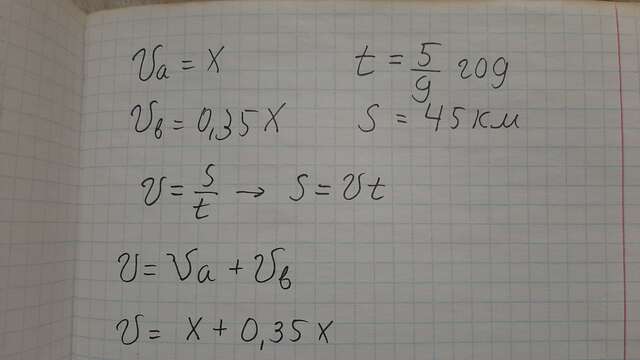 Vа = x t = 5/9 год
Vв = 0,35x S = 45 км
V = S/t → S = Vt
V = Vа + Vв
V = x + 0,35x